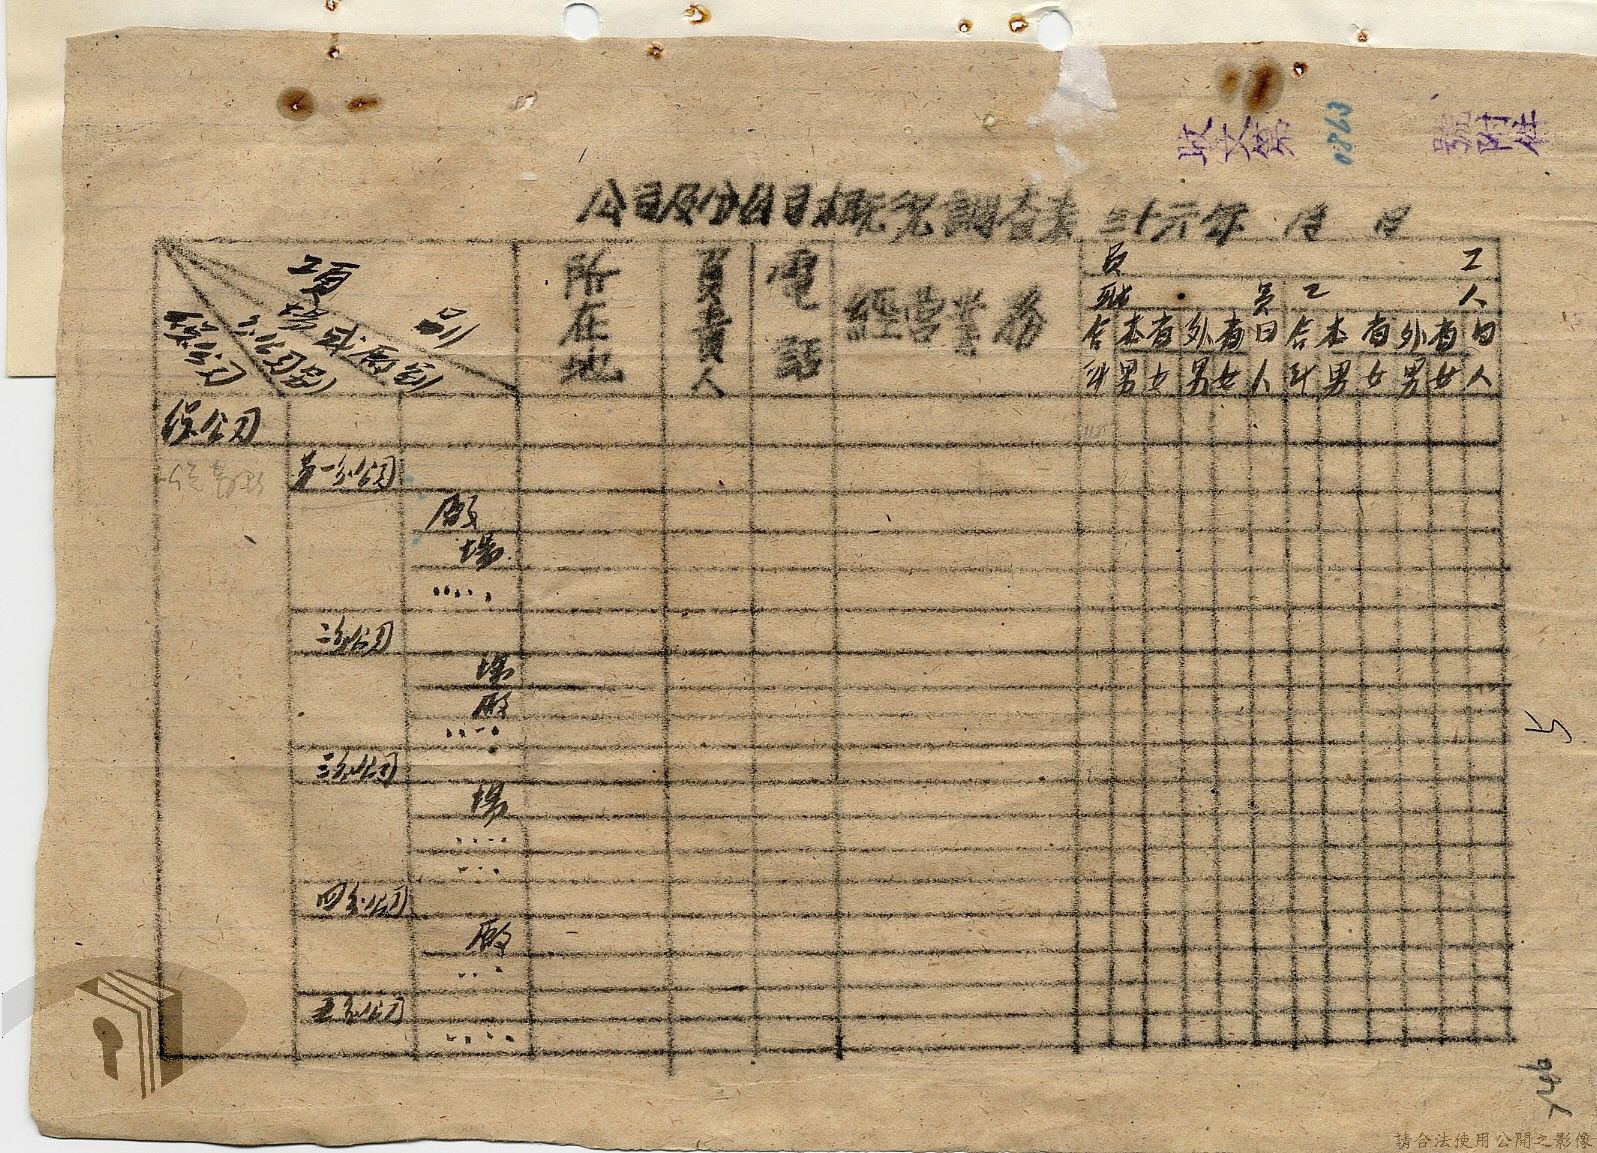 收文第 0863 號附件
公司及分公司概況調查表 三十六年 月 日
項 別
場或廠別
分公司別
總公司
所在地
負責人
電話
經營業務
員 工
職 員 工 人
合計 本省男女 外省男女 日人 合計 本省男女 外省男女 日人
總公司
第一分公司
廠
場
.....
二分公司
場
廠
.....
三分公司
場
....
....
四分公司
廠
....
五分公司
.....
請合法使用公開之影像